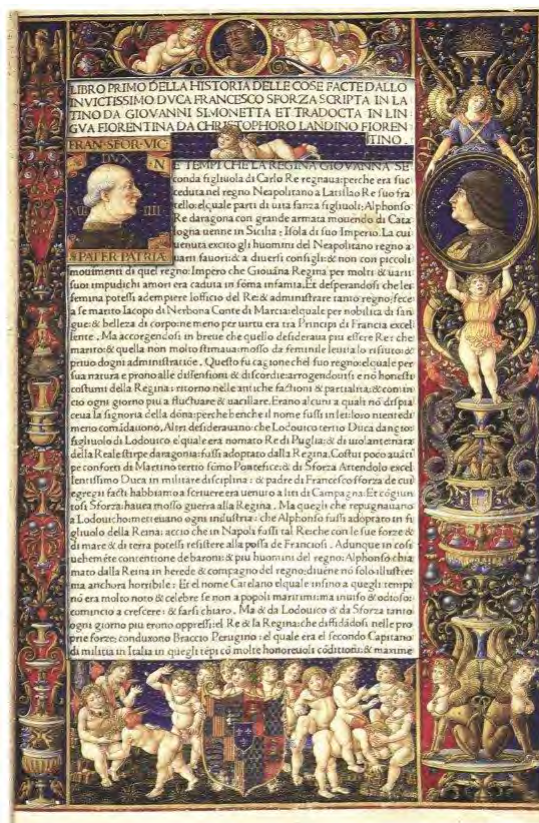 LIBRO PRIMO DELLA HISTORIA DELLE COSE FACTE DALLO
INVICTISSIMO DVCA FRANCESCO SFORZA SCRIPTA IN LA
TINO DA GIOVANNI SIMONETTA ET TRADOCTA IN LIN
GVA FIORENTINA DA CHRISTOPHORO LANDINO FIOREN
TINO.
FRAN SFOR VIC
DVX
N
MLI
IIII
PATER PATRIÆ
E TEMPI CHE LA REGINA GIOVANNA SE
conda figliuola di Carlo Re regnaua: perche era suc
ceduta nel regno Neapolitano a Latislao Re suo fra
tello: elquale parti di uita sanza figliuoli: Alphonso
Re daragona con grande armata mouendo di Cata
logna uenne in Sicilia: Isola di suo Imperio. La cui
uenuta excito gli huomini del Neapolitano regno a
uarii fauori: & a diuersi consigli: & non con piccoli
mouimenti di quel regno: Impero che Giouãna Regina per molti & uarii
suoi impudichi amori era caduta in sõma infamia. Et desperandosi che lei
femina potessi adempiere lofficio del Re: & administrare tanto regno: fece
a se marito Iacopo di Nerbona Conte di Marcia: elquale per nobilita di san
gue: & belleza di corpo: ne meno per uirtu era tra Principi di Francia excel
lente. Ma accorgendosi in breue che quello desideraua piu essere Re: che
marito: & quella non molto stimaua: mosso da feminile leuita lo rifiuto: &
priuo dogni administratiõe. Questo fu cagione chel suo regno: elquale per
sua natura e prono alle dissensioni & discordie: arrogendouisi e nõ honesti
costumi della Regina: ritorno nelle antiche factioni & partialita: & comin
cio ogni giorno piu a fluctuare & uacillare. Erano alcuni a quali nõ dispia
ceua la signoria della dõna: perche benche il nome fussi in lei: loro niente di
meno comãdauono. Altri desiderauano: che Lodouico tertio Duca dangio:
figliuolo di Lodouico, elquale era nomato Re di Puglia: & di uiolante nata
della Reale stirpe daragonia: fussi adoptato dalla Regina. Costui poco auãti
pe conforti di Martino tertio sõmo Pontefice: & di Sforza Attendolo excel
lentissimo Duca in militare disciplina: & padre di Francesco sforza de cui
egregii facti habbiamo a scriuere era uenuto a liti di Campagna: Et cõgiun
tosi Sforza: haura mosso guerra alla Regina. Ma quegli che repugnauano
a Lodouico: metteuano ogni industria: che Alphonso fussi adoptato in fi
gliuolo della Reina: accio che in Napoli fussi tal Re: che con le sue forze &
di mare & di terra potessi resistere alla possa de Franciosi. Adunque in cosi
uehemẽte contentione de baroni: & piu huomini del regno: Alphonso chia
mato dalla Reina in herede & compagno del regno: diuẽne nõ solo illustre:
ma anchora horribile: Et el nome Catelano elquale insino a quegli tempi
nõ era molto noto & celebre se non a popoli maritimi: ma inuiso & odioso:
comincio a crescere: & farsi chiaro. Ma & da Lodouico & da Sforza tanto
ogni giorno piu erono oppressi: el Re & la Regina: che diffidãdosi nelle pro
prie forze: conduxono Braccio Perugino: el quale era el secondo Capitano
di militia in Italia in quegli tẽpi cõ molte honoreuoli cõditioni: & maxime